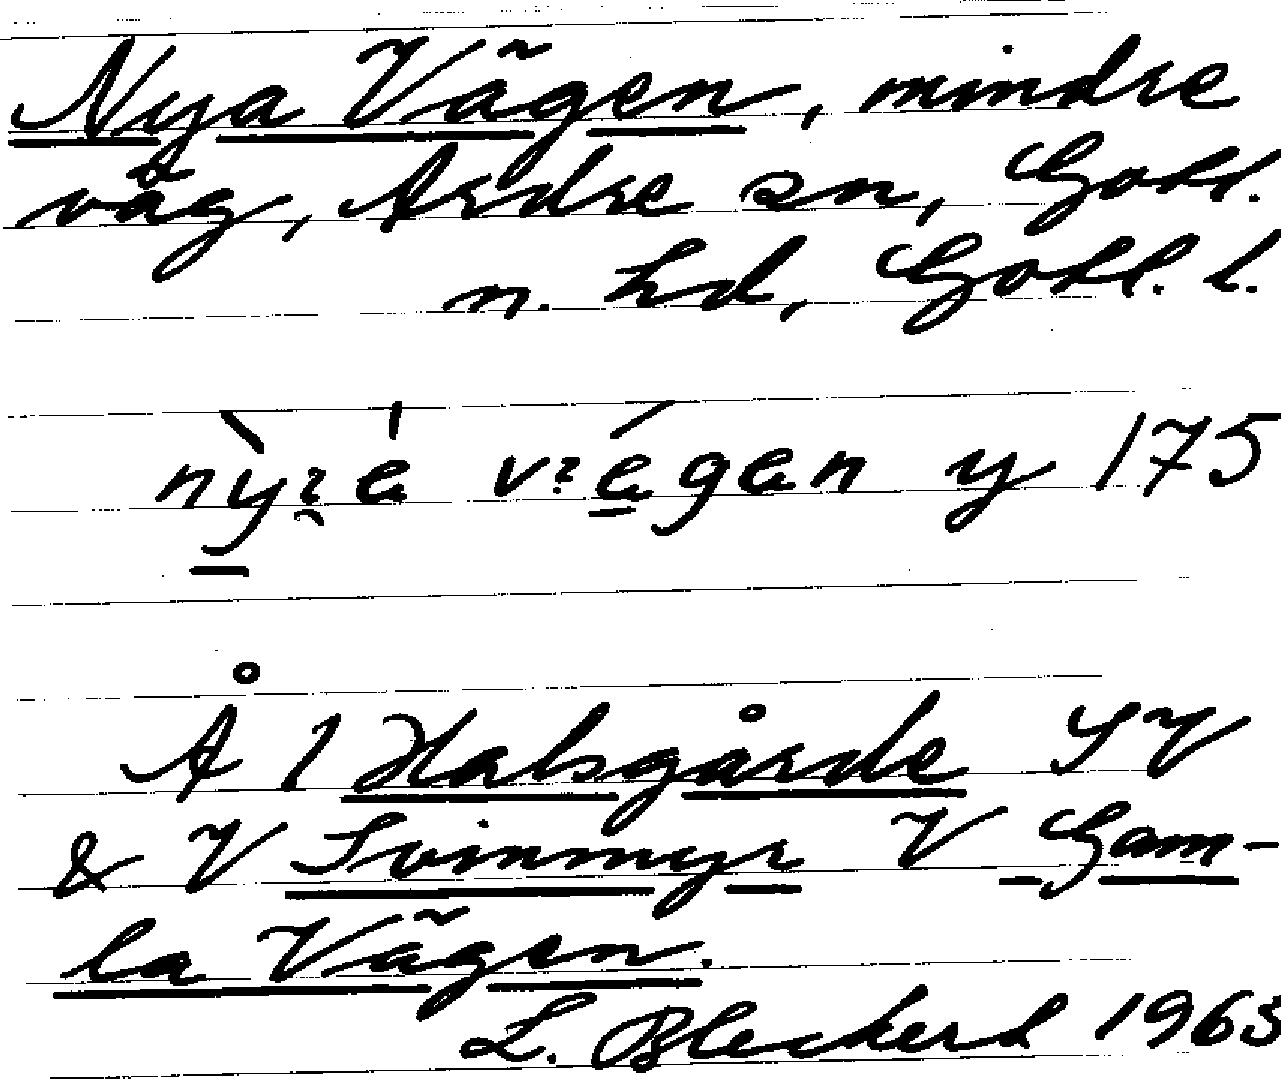 Nya Vägen, mindre
väg, Ardre sn, Gotl.
n. hd, Gotl. l.
vägen y 175
Å l Halsgårde SV
& V Svinmyr V Gam-
la Vägen.
L. Bleckert 1963